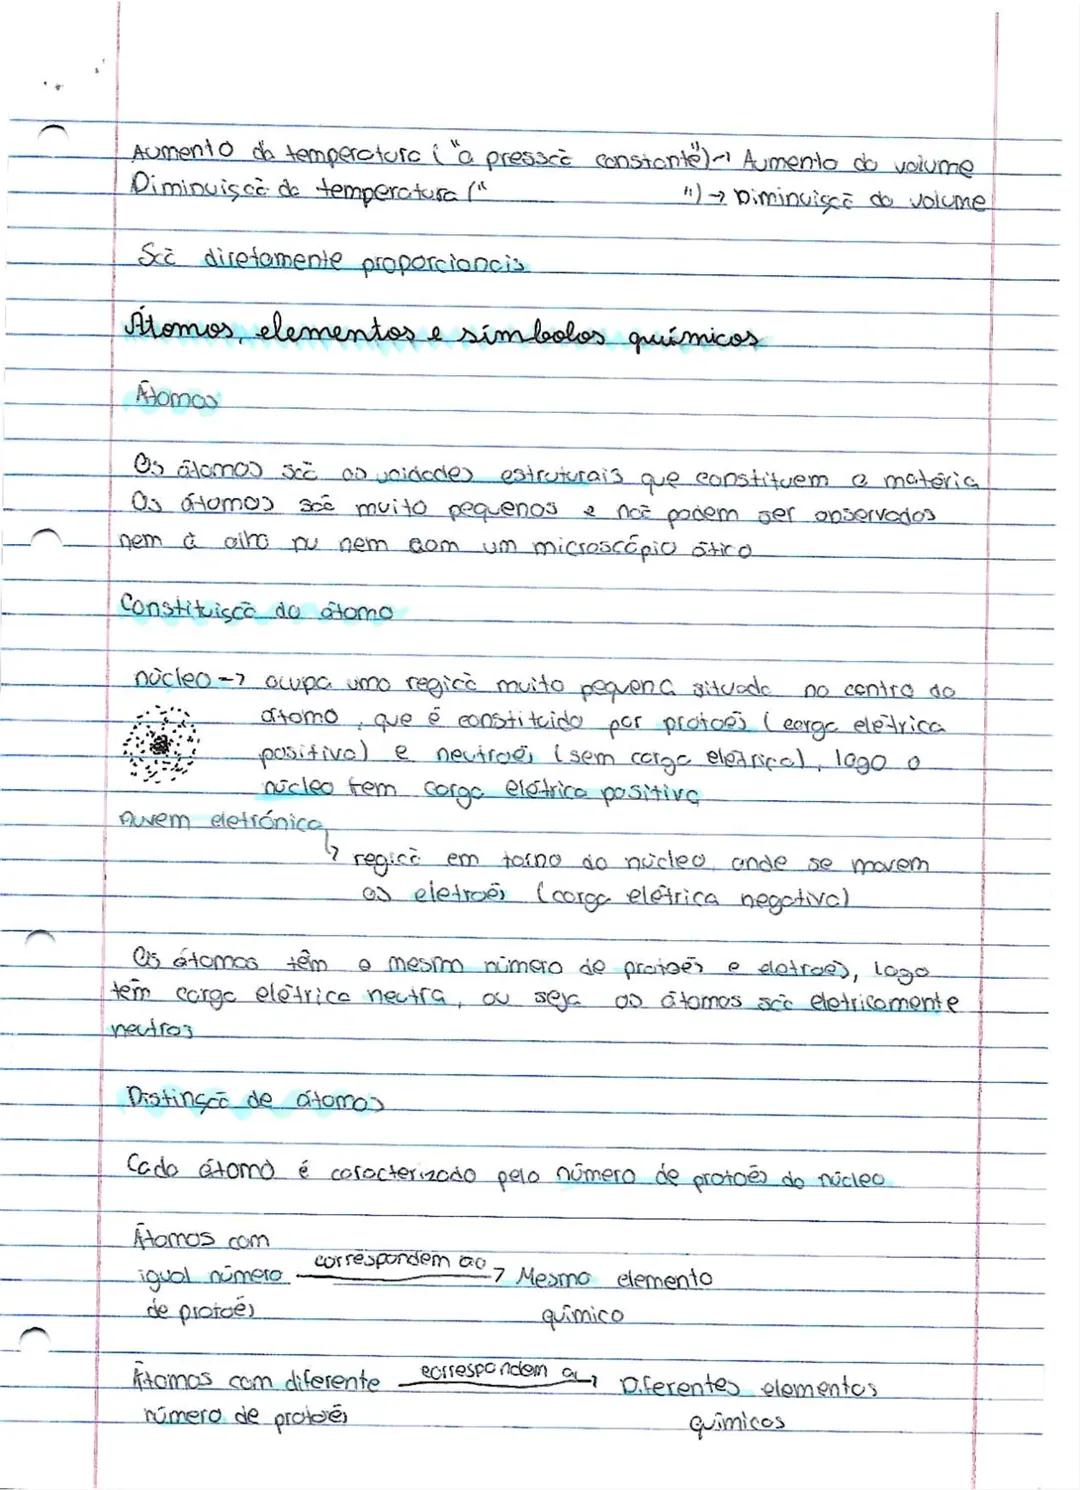 Aumento da temperatura ("a pressão constante") → Aumento do volume
Diminuição da temperatura (" ") → Diminuição do volume
São diretamente proporcionais
Átomos, elementos e símbolos químicos
Átomos
Os átomos são as unidades estruturais que constituem a matéria
Os átomos são muito pequenos e não podem ser observados
nem a olho nu nem com um microscópio ótico
Constituição do átomo
núcleo → ocupa uma região muito pequena situada no centro do
átomo, que é constituído por protoẽs (carga elétrica
positiva) e neutroẽs (sem carga elétrica), logo o
núcleo tem carga elétrica positiva
Nuvem eletrónica
↳ região em torno do núcleo onde se movem
os eletroẽs (carga elétrica negativa)
Os átomos têm o mesmo número de protoẽs e eletroẽs, logo
têm carga elétrica neutra, ou seja os átomos são eletricamente
neutros
Distinção de átomos
Cada átomo é caracterizado pelo número de protoẽs do núcleo
Átomos com
igual número correspondem ao → Mesmo elemento
de protoẽs químico
Átomos com diferente correspondem a → Diferentes elementos
número de protoẽs químicos